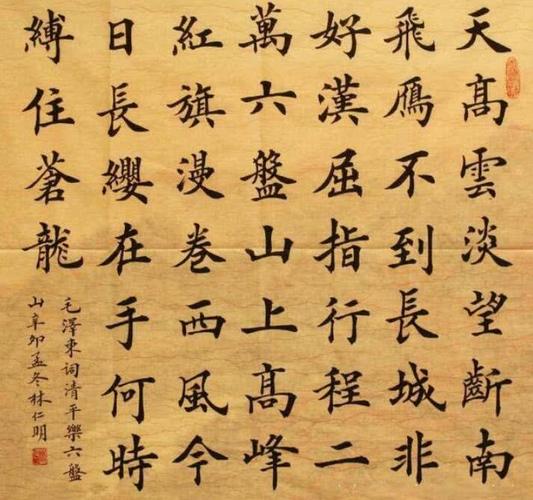 天高雲淡望斷南
飛鴈不到長城非
好漢屈指行程二
萬六盤山上高峰
紅旗漫卷西風今
日長纓在手何時
縛住蒼龍
毛澤東詞清平樂六盤
山辛卯孟冬林仁明